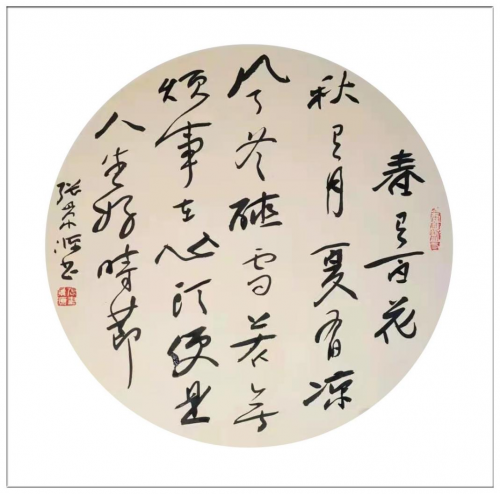 春有百花
秋有月夏有凉
风冬雪若无
烦事在心头便是
人生好時節
张荣书